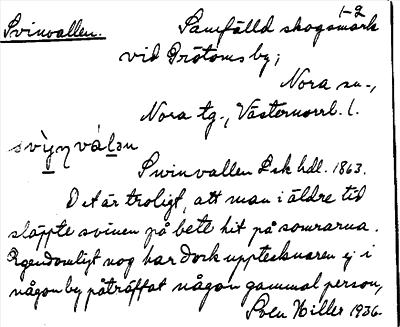 1-2
Svinvallen. Samfälld skogsmark
vid Grötoms by;
Nora sn.,
Nora tg., Västernorrl. l.
Svinvallen Lsk hdl. 1863.
Det är troligt, att man i äldre tid
släppte svinen på bete hit på somrarna.
Egendomligt nog har dock upptecknaren ej i
någon by påträffat någon gammal person,
Sven Hiller 1936.